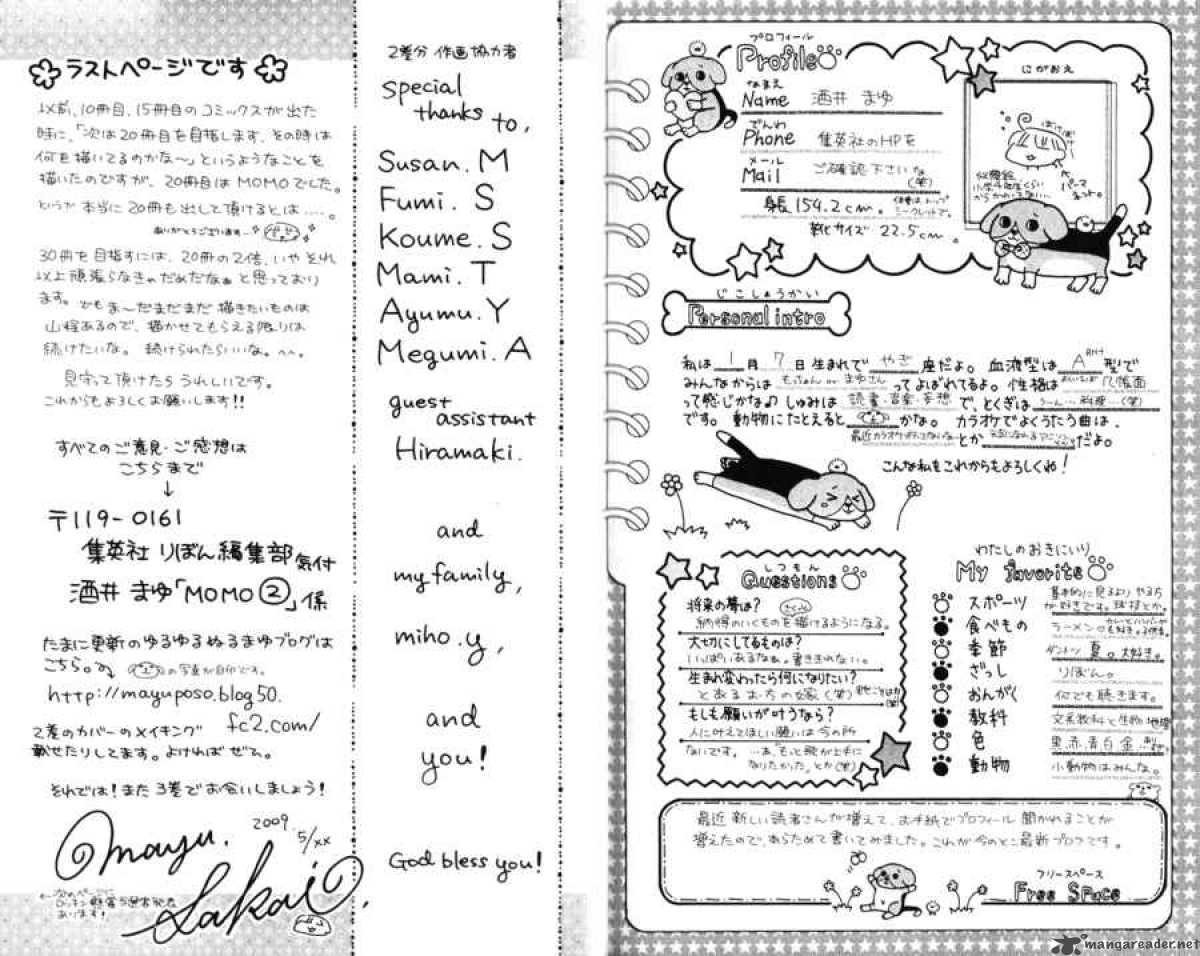 ラストページです
以前、10冊目、15冊目のコミックスが出た
時に、「次は20冊目を目指します、その時は
何を描いてるのかな〜」というようなことを
描いたのですが、20冊目はMOMOでした。
というか本当に20冊も出して頂けるとは……。
ありがとうございます…
30冊を目指すには、20冊の2倍、いやそれ
以上頑張らなきゃだめだなぁと思っており
ます。でもま〜だまだまだ描きたいものは
山程あるので、描かせてもらえる限りは
続けたいな。続けられたらいいな。^^。
見守って頂けたらうれしいです。
これからもよろしくお願いします!!
すべてのご意見・ご感想は
こちらまで
↓
〒119-0161
集英社 りぼん編集部 気付
酒井 まゆ「MOMO②」係
たまに更新のゆるゆるぬるまゆブログは
こちら。の写真が目印です。
http://mayuposo.blog50.
fc2.com/
2巻のカバーのメイキング
載せたりしてます。よければぜひ。
それでは!また3巻でお会いしましょう!
2009.
5/xx
mayu.
Sakai
2巻分 作画協力者
special
thanks to,
Susan.M
Fumi.S
Koume.S
Mami.T
Ayumu.Y
Megumi.A
guest
assistant
Hiramaki.
and
my family,
miho.y,
and
you!
God bless you!
プロフィール
Profile
なまえ
Name 酒井 まゆ
でんわ
Phone 集英社のHPを
メール
Mail ご確認下さいな
(笑)
身長154.2cm。
靴サイズ 22.5cm。
にがおえ
じこしょうかい
Personal intro
私は1月7日生まれでやぎ座だよ。血液型はA RH+型で
みんなからはもっちゃん or まゆさんってよばれてるよ。性格は几帳面
って感じかな♪しゅみは読書・音楽・妄想で、とくぎはうーん…料理(笑)
です。動物にたとえるとかな。カラオケでよくうたう曲は、
とかだよ。
こんな私もこれからもよろしくね!
しつもん
Questions
将来の夢は?
納得のいくものを描けるようになる。
大切にしてるものは?
いっぱいあるなぁ。書ききれない。
生まれ変わったら何になりたい?
とあるお方の嫁(笑)
もしも願いが叶うなら?
人に叶えてほしい願いは今の所
ないです。…あ、「もっと歌が上手に
なりたかった」とか(笑)
わたしのおきにいり
My favorite
スポーツ 基本的に見るよりやる方
が好きです。球技とか。
食べもの ラーメン
季節 ダントツ 夏。大好き。
ざっし りぼん。
おんがく 何でも聴きます。
教科 文系教科と生物 地理
色 黒.赤.青白 金.
動物 小動物はみんな。
最近 新しい読者さんが増えて、お手紙でプロフィール 聞かれることが
増えたので、あらためて書いてみました。これが今のとこ最新プロフです。
フリースペース
Free Space
mangareader.net